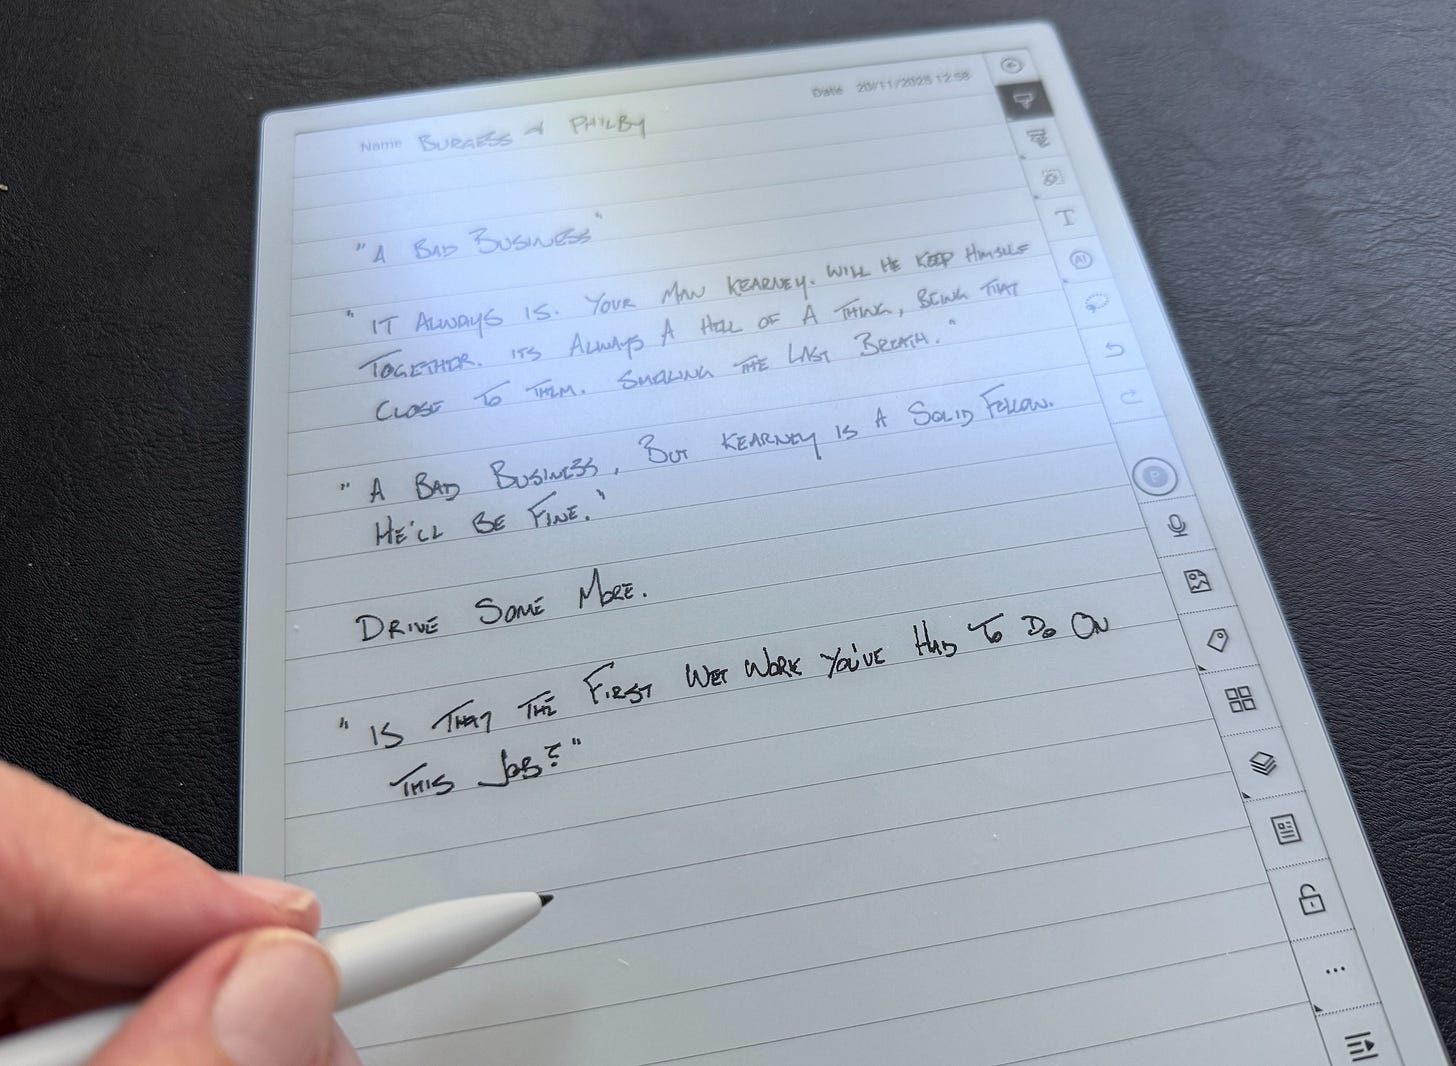 Date 20/11/2025 12:58
Name BURGESS & PHILBY
"A BAD BUSINESS"
"IT ALWAYS IS. YOUR MAN KEARNEY. WILL HE KEEP HIMSELF
TOGETHER. ITS ALWAYS A HELL OF A THING, BEING THAT
CLOSE TO THEM. SMELLING THE LAST BREATH."
"A BAD BUSINESS, BUT KEARNEY IS A SOLID FELLOW.
HE'LL BE FINE."
DRIVE SOME MORE.
"IS THAT THE FIRST WET WORK YOU'VE HAD TO DO ON
THIS JOB?"
T
AI
P